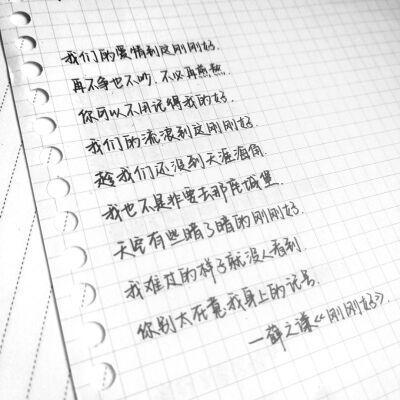 我们的爱情到这刚刚好.
再不争也不吵.不必再煎熬.
你可以不用记得我的好.
我们的流浪到这刚刚好.
趁我们还没到天涯海角.
我也不是非要去那座城堡.
天空有些暗了暗的刚刚好.
我难过的样子就没人看到.
你别太在意我身上的记号.
—薛之谦《刚刚好》.